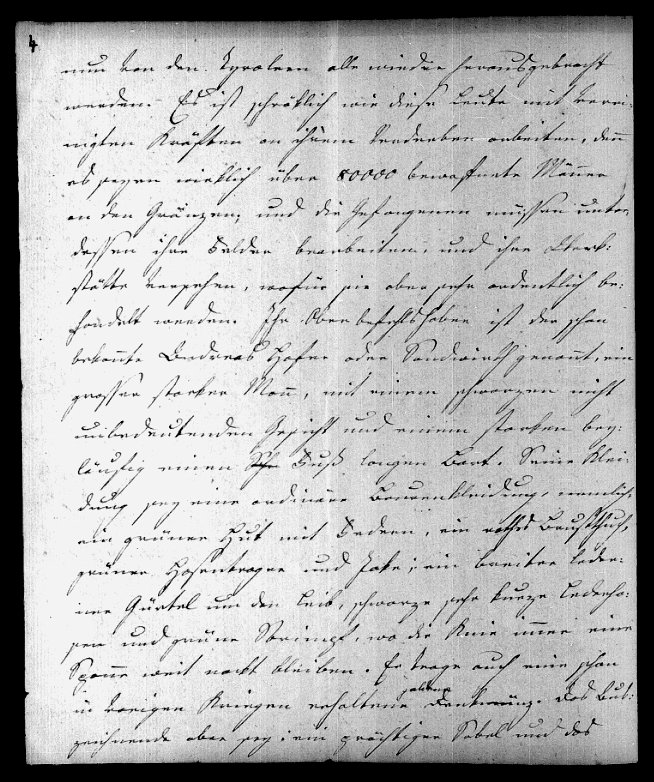 4
nun von den Tyrolern alle wieder herausgebracht
werden. Es ist schröklich wie diese Leute mit verei-
nigten Kräften an ihrem Verderben arbeiten, denn
es seyen wirklich über 80000 bewaffnete Männer
an den Gränzen, und die Gefangenen müssen unter
dessen ihre Felder bearbeiten, und ihre Werk-
stätte versehen, wofür sie aber sehr ordentlich be-
handelt werden. Ihr Oberbefehlshaber ist der schon
bekannte Andreas Hofer oder Sandwirth genannt, ein
grosser starker Mann, mit einem schwarzen nicht
unbedeutenden Gesicht und einem starken bey-
läufig einen Schu Fuß langen Bart. Seine Klei-
dung sey eine ordinäre Baurenkleidung, nemlich,
ein grüner Hut mit Federn, ein rothes Brusttuch,
grüner Hosentrager und Jake; ein breiter leder-
ner Gürtel um den Leib, schwarze sehr kurze Lederho-
sen und grüne Strimpf, wo die Knie immer eine
Spanne weit nackt bleiben. Er trage auch eine schon
in vorigen Kriegen erhaltene goldene Denkmünz. Das Aus-
zeichnende aber sey: ein prächtiger Säbel und das